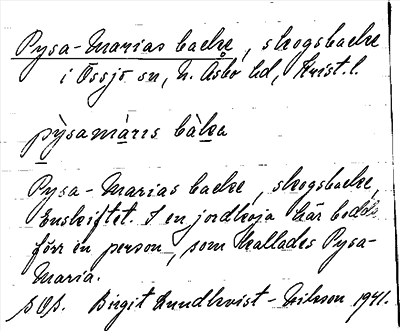 Pysa-Marias backe, skogsbacke
i Össjö sn, N. Åsbo hd, Krist. l.
pỳsamàris bàka
Pysa-Marias backe, skogsbacke,
Enskiftet. I en jordkoja här bodde
förr en person, som kallades Pysa-
Maria.
Birgit Lundkvist-Nilsson 1941.